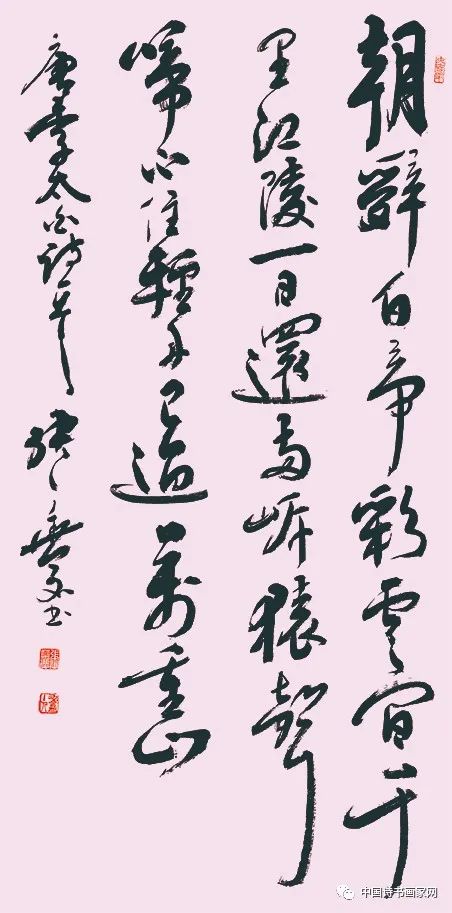 朝辭白帝彩雲間千
里江陵一日還兩岸猿聲
啼不住輕舟已過萬重山
唐李太白詩一首 書
中国诗书画家网